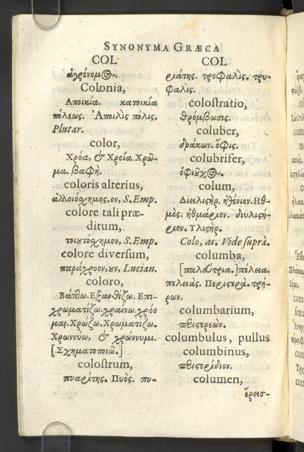 SYNONYMA GRÆCA
COL
ἀγρόνομ@.
Colonia,
Ἀποικία. κατοικία
πόλεως. Ἄποιλις πόλις,
Plutar.
color,
Χρόα, & Χροία. Χρῶ-
μα. βαφή.
coloris alterius,
ἀλλοιόχρημος, ον, S. Emp.
colore tali præ-
ditum,
τοιουτόχρημον, S. Emp.
colore diversum,
παράχροον, ον, Lucian.
coloro,
Βάπτω. Ἐξανθίζω. Ἐπι-
χρωματίζω. χραίνω. χρόο
μαι. Χρώζω. Χρωματίζω.
Χρωννύω, & χρώννυμι.
[Σχηματοποιῶ.]
colostrum,
πυαρίτης. Πυός. πυ-
COL
ριάτης. τροφαλίς. τρυ-
φαλίς.
colostratio,
Θρόμβωσις.
coluber,
δράκων. ὄφις.
colubrifer,
ὀφιοῦχ@.
colum,
Διυλιστήρ. ἠθήνιον. Ἠθ-
μός. ἠθμάριον. διυλιστή-
ριον. Ὑλιστήρ.
Colo, as. Vide suprà.
columba,
πέλεια.
πελειάς. Περιστερά. τρή-
ρων.
columbarium,
περιστερεών.
columbulus, pullus
columbinus,
περιστερίδιον.
columen,
ἔρεισ-